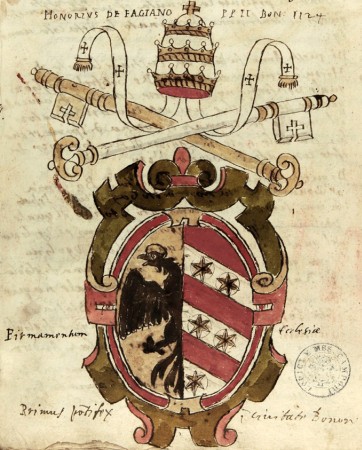 HONORIUS DE FAGIANO PP II BON: 1124
Firmamentum Ecclesiæ
Primus potifex civitate Bonon